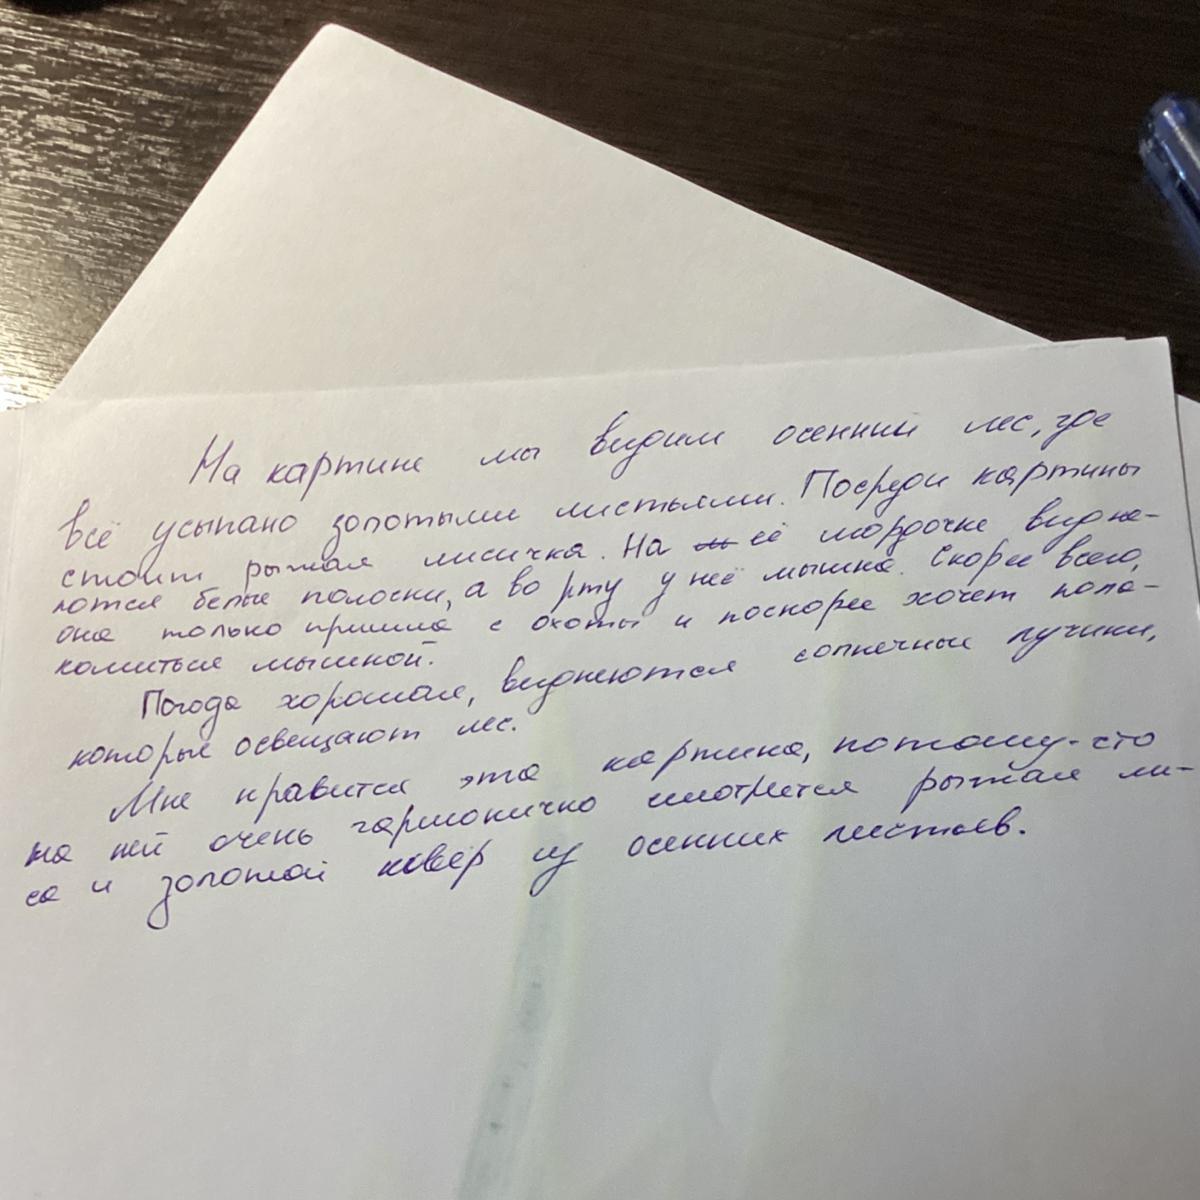 На картине мы видим осенний лес, где
всё усыпано золотыми листьями. Посреди картины
стоит рыжая лисичка. На её мордочке видне-
ются белые полоски, а во рту у неё мышка. Скорее всего,
она только пришла с охоты и поскорее хочет пола-
комиться мышкой.
Погода хорошая, виднеются солнечные лучики,
которые освещают лес.
Мне нравится эта картина, потому-что
на ней очень гармонично смотрется рыжая ли-
са и золотой ковёр из осенних листьев.